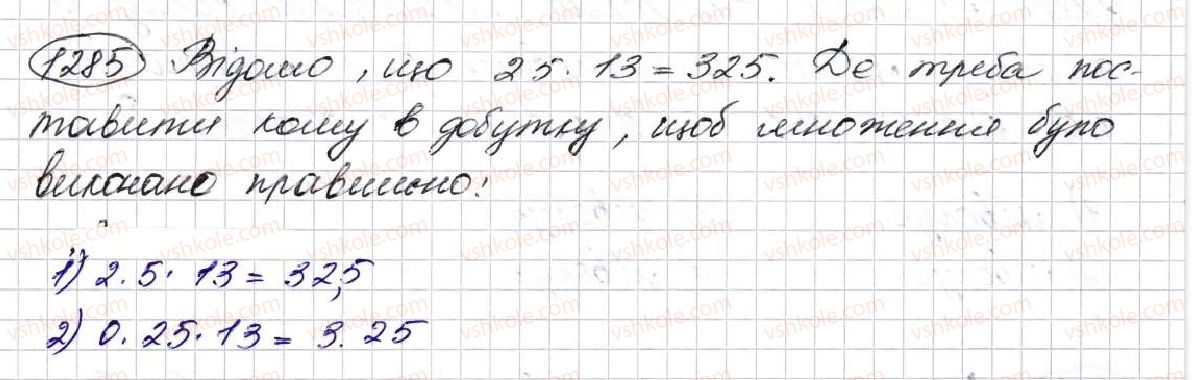 1285 Відомо, що 25 · 13 = 325. Де треба пос-
тавити кому в добутку, щоб множення було
виконано правильно:
1) 2.5 · 13 = 32,5
2) 0.25 · 13 = 3.25